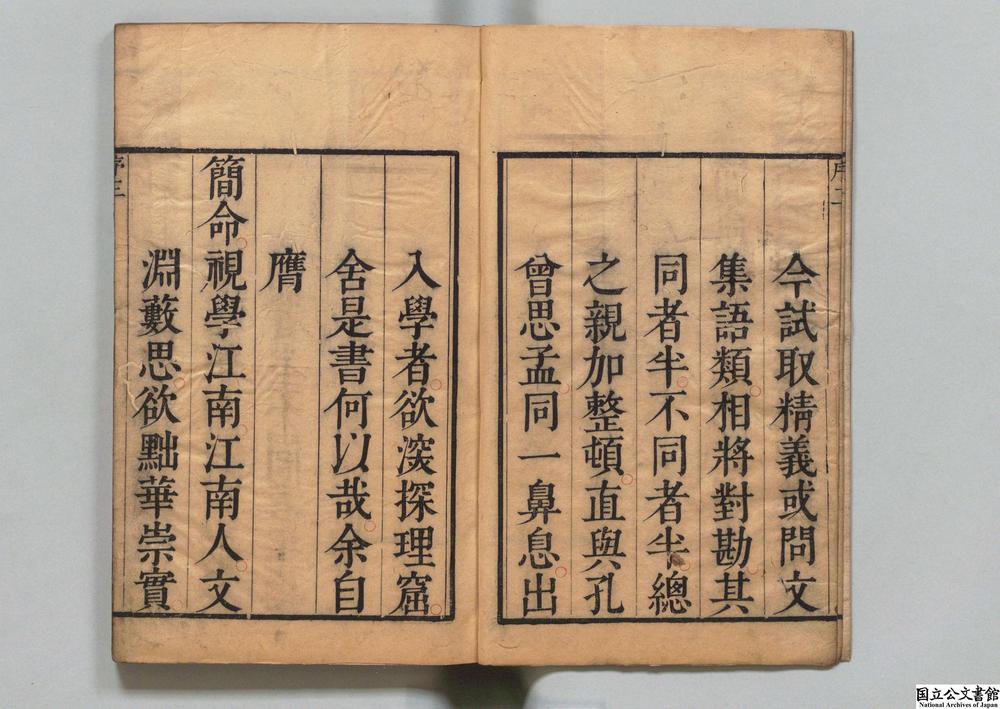 序二
今試取精義或問文
集語類相將對勘其
同者半不同者半總
之親加整頓直與孔
曾思孟同一鼻息出
入學者欲深探理窟
舍是書何以哉余自
膺
簡命視學江南江南人文
淵藪思欲黜華崇實
序三
国立公文書館
National Archives of Japan